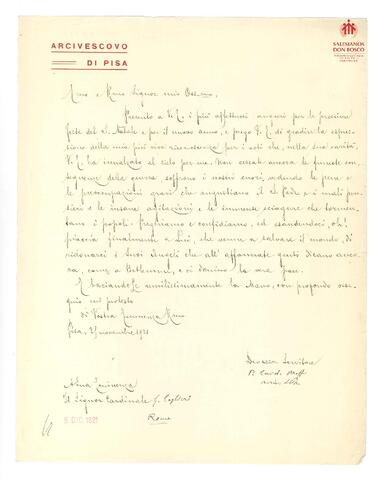 ARCIVESCOVO
DI PISA
SALESIANOS
DON BOSCO
Emo e Rmo Signor mio Oss.mo,
Permetto a V. E. i più affettuosi auguri per le prossime
feste del S. Natale e per il nuovo anno, e prego V. E. di gradire la espres
sione della mia più viva riconoscenza per i voti che, nella sua carità,
V. E. ha innalzato al cielo per me. Non cessate ancora le funeste con
seguenze della guerra, soffrono i nostri cuori vedendo le pene e
le preoccupazioni gravi che angustiano il S. Padre e i mali pen
sieri e le insane agitazioni e le immense sciagure che tormen
tano i popoli. Preghiamo e confidiamo, ed esaudendoci, oh!
piaccia finalmente a Lui, che venne a salvare il mondo, di
ridonarci i Suoi Angeli che all' affannate genti dicano anco
ra, come a Betlemme, e ci donino la vera pace.
E baciandoLe umilissimamente la Mano, con profondo osse
quio mi protesto
di Vostra Eminenza Rma
Pisa, 25 novembre 1921
Servitore
P. Card. Maffi
A Sua Eminenza
Il Signor Cardinale G. Cagliero
Roma
5 DIC. 1921